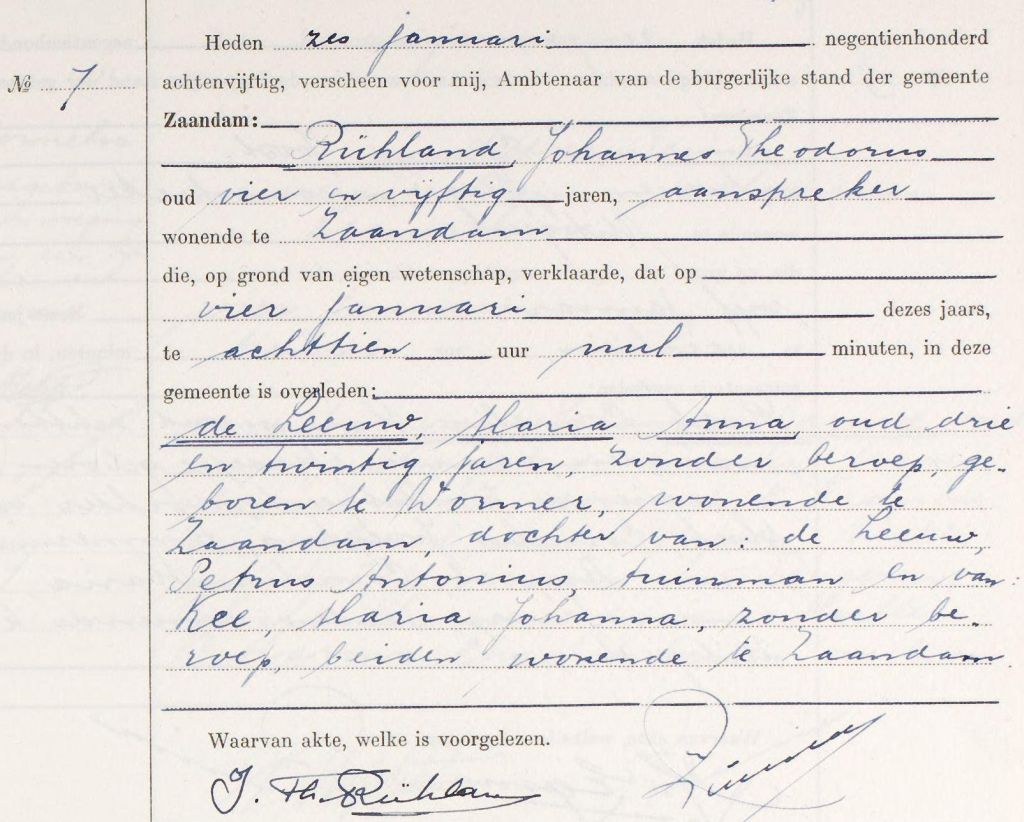 Heden zes januari negentienhonderd
№ 7 achtenvijftig, verscheen voor mij, Ambtenaar van de burgerlijke stand der gemeente
Zaandam:
Rühland, Johannes Theodorus
oud vier en vijftig jaren, aanspreker
wonende te Zaandam
die, op grond van eigen wetenschap, verklaarde, dat op
vier januari dezes jaars,
te achttien uur nul minuten, in deze
gemeente is overleden:
de Leeuw, Maria Anna, oud drie
en twintig jaren, zonder beroep, ge-
boren te Wormer, wonende te
Zaandam, dochter van: de Leeuw,
Petrus Antonius, tuinman en van:
Kee, Maria Johanna, zonder be-
roep, beiden wonende te Zaandam.
Waarvan akte, welke is voorgelezen.
J. Th. Rühland